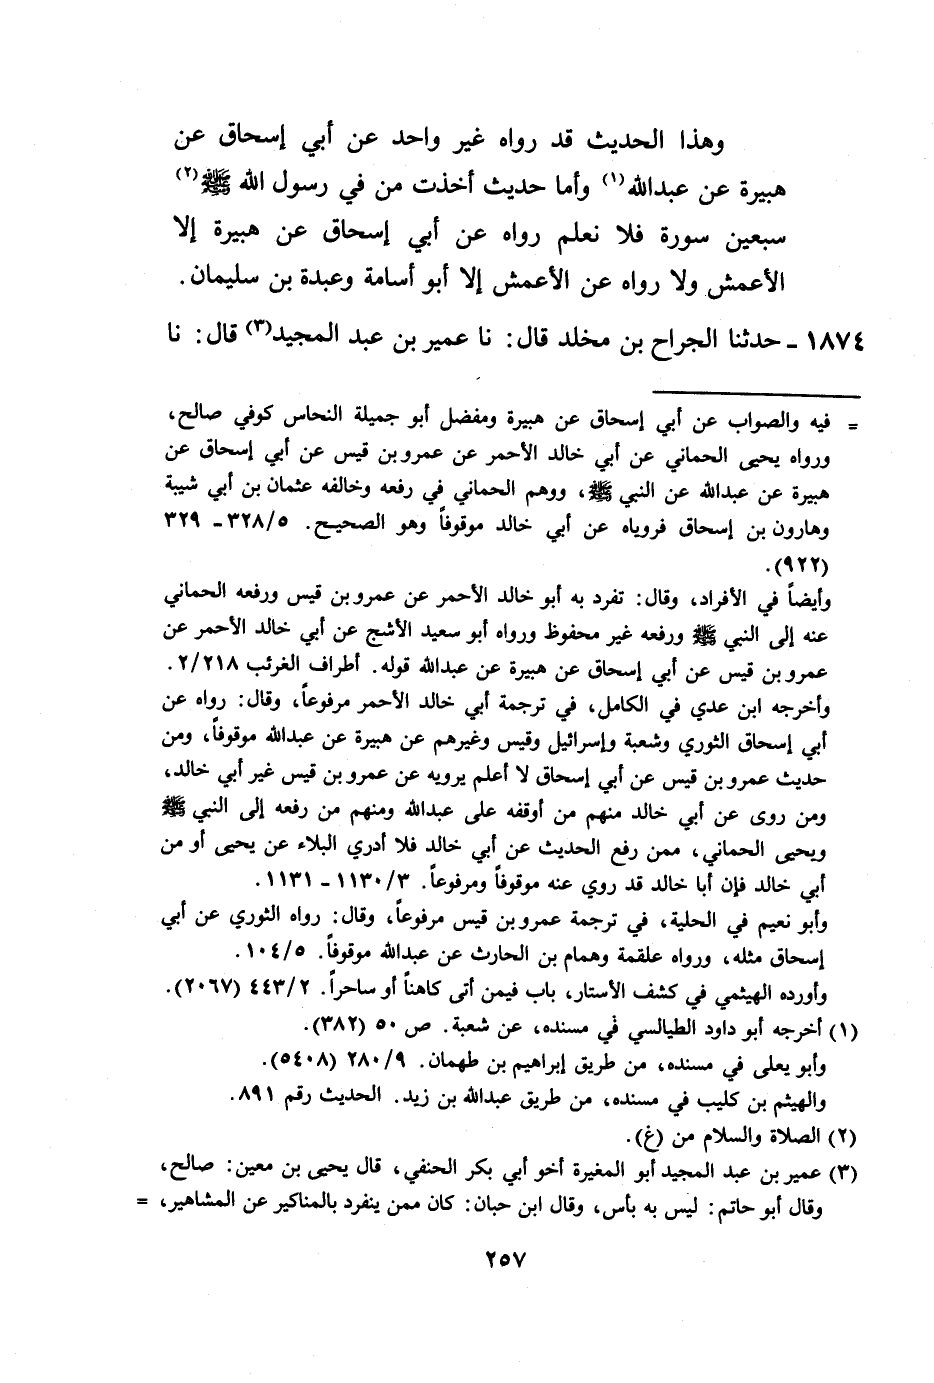 وهذا الحديث قد رواه غير واحد عن أبي إسحاق عن
هبيرة عن عبدالله(١) وأما حديث أخذت من في رسول الله ﷺ(٢)
سبعين سورة فلا نعلم رواه عن أبي إسحاق عن هبيرة إلا
الأعمش ولا رواه عن الأعمش إلا أبو أسامة وعبدة بن سليمان.
١٨٧٤ - حدثنا الجراح بن مخلد قال: نا عمير بن عبد المجيد(٣) قال: نا
= فيه والصواب عن أبي إسحاق عن هبيرة ومفضل أبو جميلة النحاس كوفي صالح،
ورواه يحيى الحماني عن أبي خالد الأحمر عن عمرو بن قيس عن أبي إسحاق عن
هبيرة عن عبدالله عن النبي ﷺ، ووهم الحماني في رفعه وخالفه عثمان بن أبي شيبة
وهارون بن إسحاق فروياه عن أبي خالد موقوفاً وهو الصحيح. ٣٢٨/٥ - ٣٢٩
(٩٢٢).
وأيضاً في الأفراد، وقال: تفرد به أبو خالد الأحمر عن عمرو بن قيس ورفعه الحماني
عنه إلى النبي ﷺ ورفعه غير محفوظ ورواه أبو سعيد الأشج عن أبي خالد الأحمر عن
عمرو بن قيس عن أبي إسحاق عن هبيرة عن عبدالله قوله. أطراف الغرئب ٢/٢١٨.
وأخرجه ابن عدي في الكامل، في ترجمة أبي خالد الأحمر مرفوعاً، وقال: رواه عن
أبي إسحاق الثوري وشعبة وإسرائيل وقيس وغيرهم عن هبيرة عن عبدالله موقوفاً، ومن
حديث عمرو بن قيس عن أبي إسحاق لا أعلم يرويه عن عمرو بن قيس غير أبي خالد،
ومن روى عن أبي خالد منهم من أوقفه على عبدالله ومنهم من رفعه إلى النبي ﷺ
ويحيى الحماني، ممن رفع الحديث عن أبي خالد فلا أدري البلاء عن يحيى أو من
أبي خالد فإن أبا خالد قد روي عنه موقوفاً ومرفوعاً. ١١٣٠/٣ - ١١٣١.
وأبو نعيم في الحلية، في ترجمة عمرو بن قيس مرفوعاً، وقال: رواه الثوري عن أبي
إسحاق مثله، ورواه علقمة وهمام بن الحارث عن عبدالله موقوفاً. ١٠٤/٥.
وأورده الهيثمي في كشف الأستار، باب فيمن أتى كاهناً أو ساحراً. ٤٤٣/٢ (٢٠٦٧).
(١) أخرجه أبو داود الطيالسي في مسنده، عن شعبة. ص ٥٠ (٣٨٢).
وأبو يعلى في مسنده، من طريق إبراهيم بن طهمان. ٢٨٠/٩ (٥٤٠٨).
والهيثم بن كليب في مسنده، من طريق عبدالله بن زيد. الحديث رقم ٨٩١.
(٢) الصلاة والسلام من (غ).
(٣) عمير بن عبد المجيد أبو المغيرة أخو أبي بكر الحنفي، قال يحيى بن معين: صالح،
وقال أبو حاتم: ليس به بأس، وقال ابن حبان: كان ممن ينفرد بالمناكير عن المشاهير، =
٢٥٧